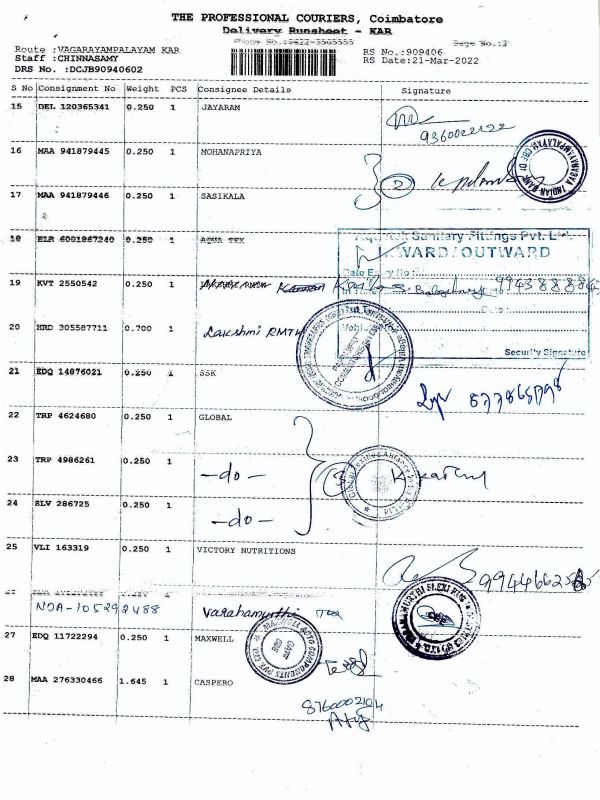 THE PROFESSIONAL COURIERS, Coimbatore
Delivery Runsheet - KAR
Phone No.:0422-3565555 Page No.:2
Route :VAGARAYAMPALAYAM KAR RS No.:909406
Staff :CHINNASAMY RS Date:21-Mar-2022
DRS No. :DCJB90940602
S No Consignment No Weight PCS Consignee Details Signature
15 DEL 120365341 0.250 1 JAYARAM
9360022122
16 MAA 941879445 0.250 1 MOHANAPRIYA
2
17 MAA 941879446 0.250 1 SASIKALA
INDIAN BANK
18 BLR 6001867240 0.250 1 AQUA TEX
Sanitary Fittings Pvt. Ltd.
INWARD/OUTWARD
Date Entry No :
19 KVT 2550542 0.250 1
Date :
20 HRD 305587711 0.700 1 Lakshmi RMTH
Security Signature
21 EDQ 14876021 0.250 1 SSK
22 TRP 4624680 0.250 1 GLOBAL
23 TRP 4986261 0.250 1 -do-
3
24 SLV 286725 0.250 1 -do-
25 VLI 163319 0.250 1 VICTORY NUTRITIONS
NDA-105292488 Varahamurthi
27 EDQ 11722294 0.250 1 MAXWELL
28 MAA 276330466 1.645 1 CASPERO
8760002104